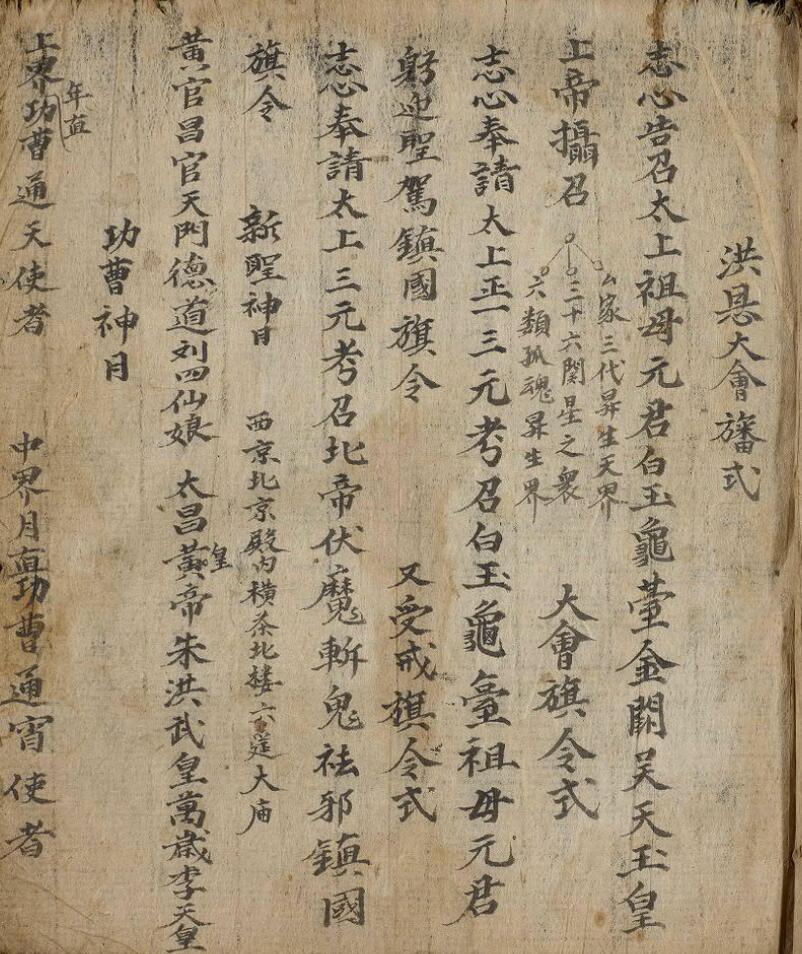 洪恩大會旛式
志心告召太上祖母元君白玉龜臺金闕昊天玉皇
上帝攝召
厶家三代昇生天界
三十六関星之衆
六類孤魂昇生界
大會旗令式
志心奉請太上正一三元考召白玉龜臺祖母元君
躬迎聖駕鎮國旗令 又受戒旗令式
志心奉請太上三元考召北帝伏魔斬鬼祛邪鎮國
旗令 新聖神目 西京北京殿内橫茶北楼六莚大庙
黃官昌官天門德道刘四仙娘 太昌黃皇帝朱洪武皇萬歲李天皇
功曹神目
上界年直功曹通天使者 中界月直功曹通宵使者